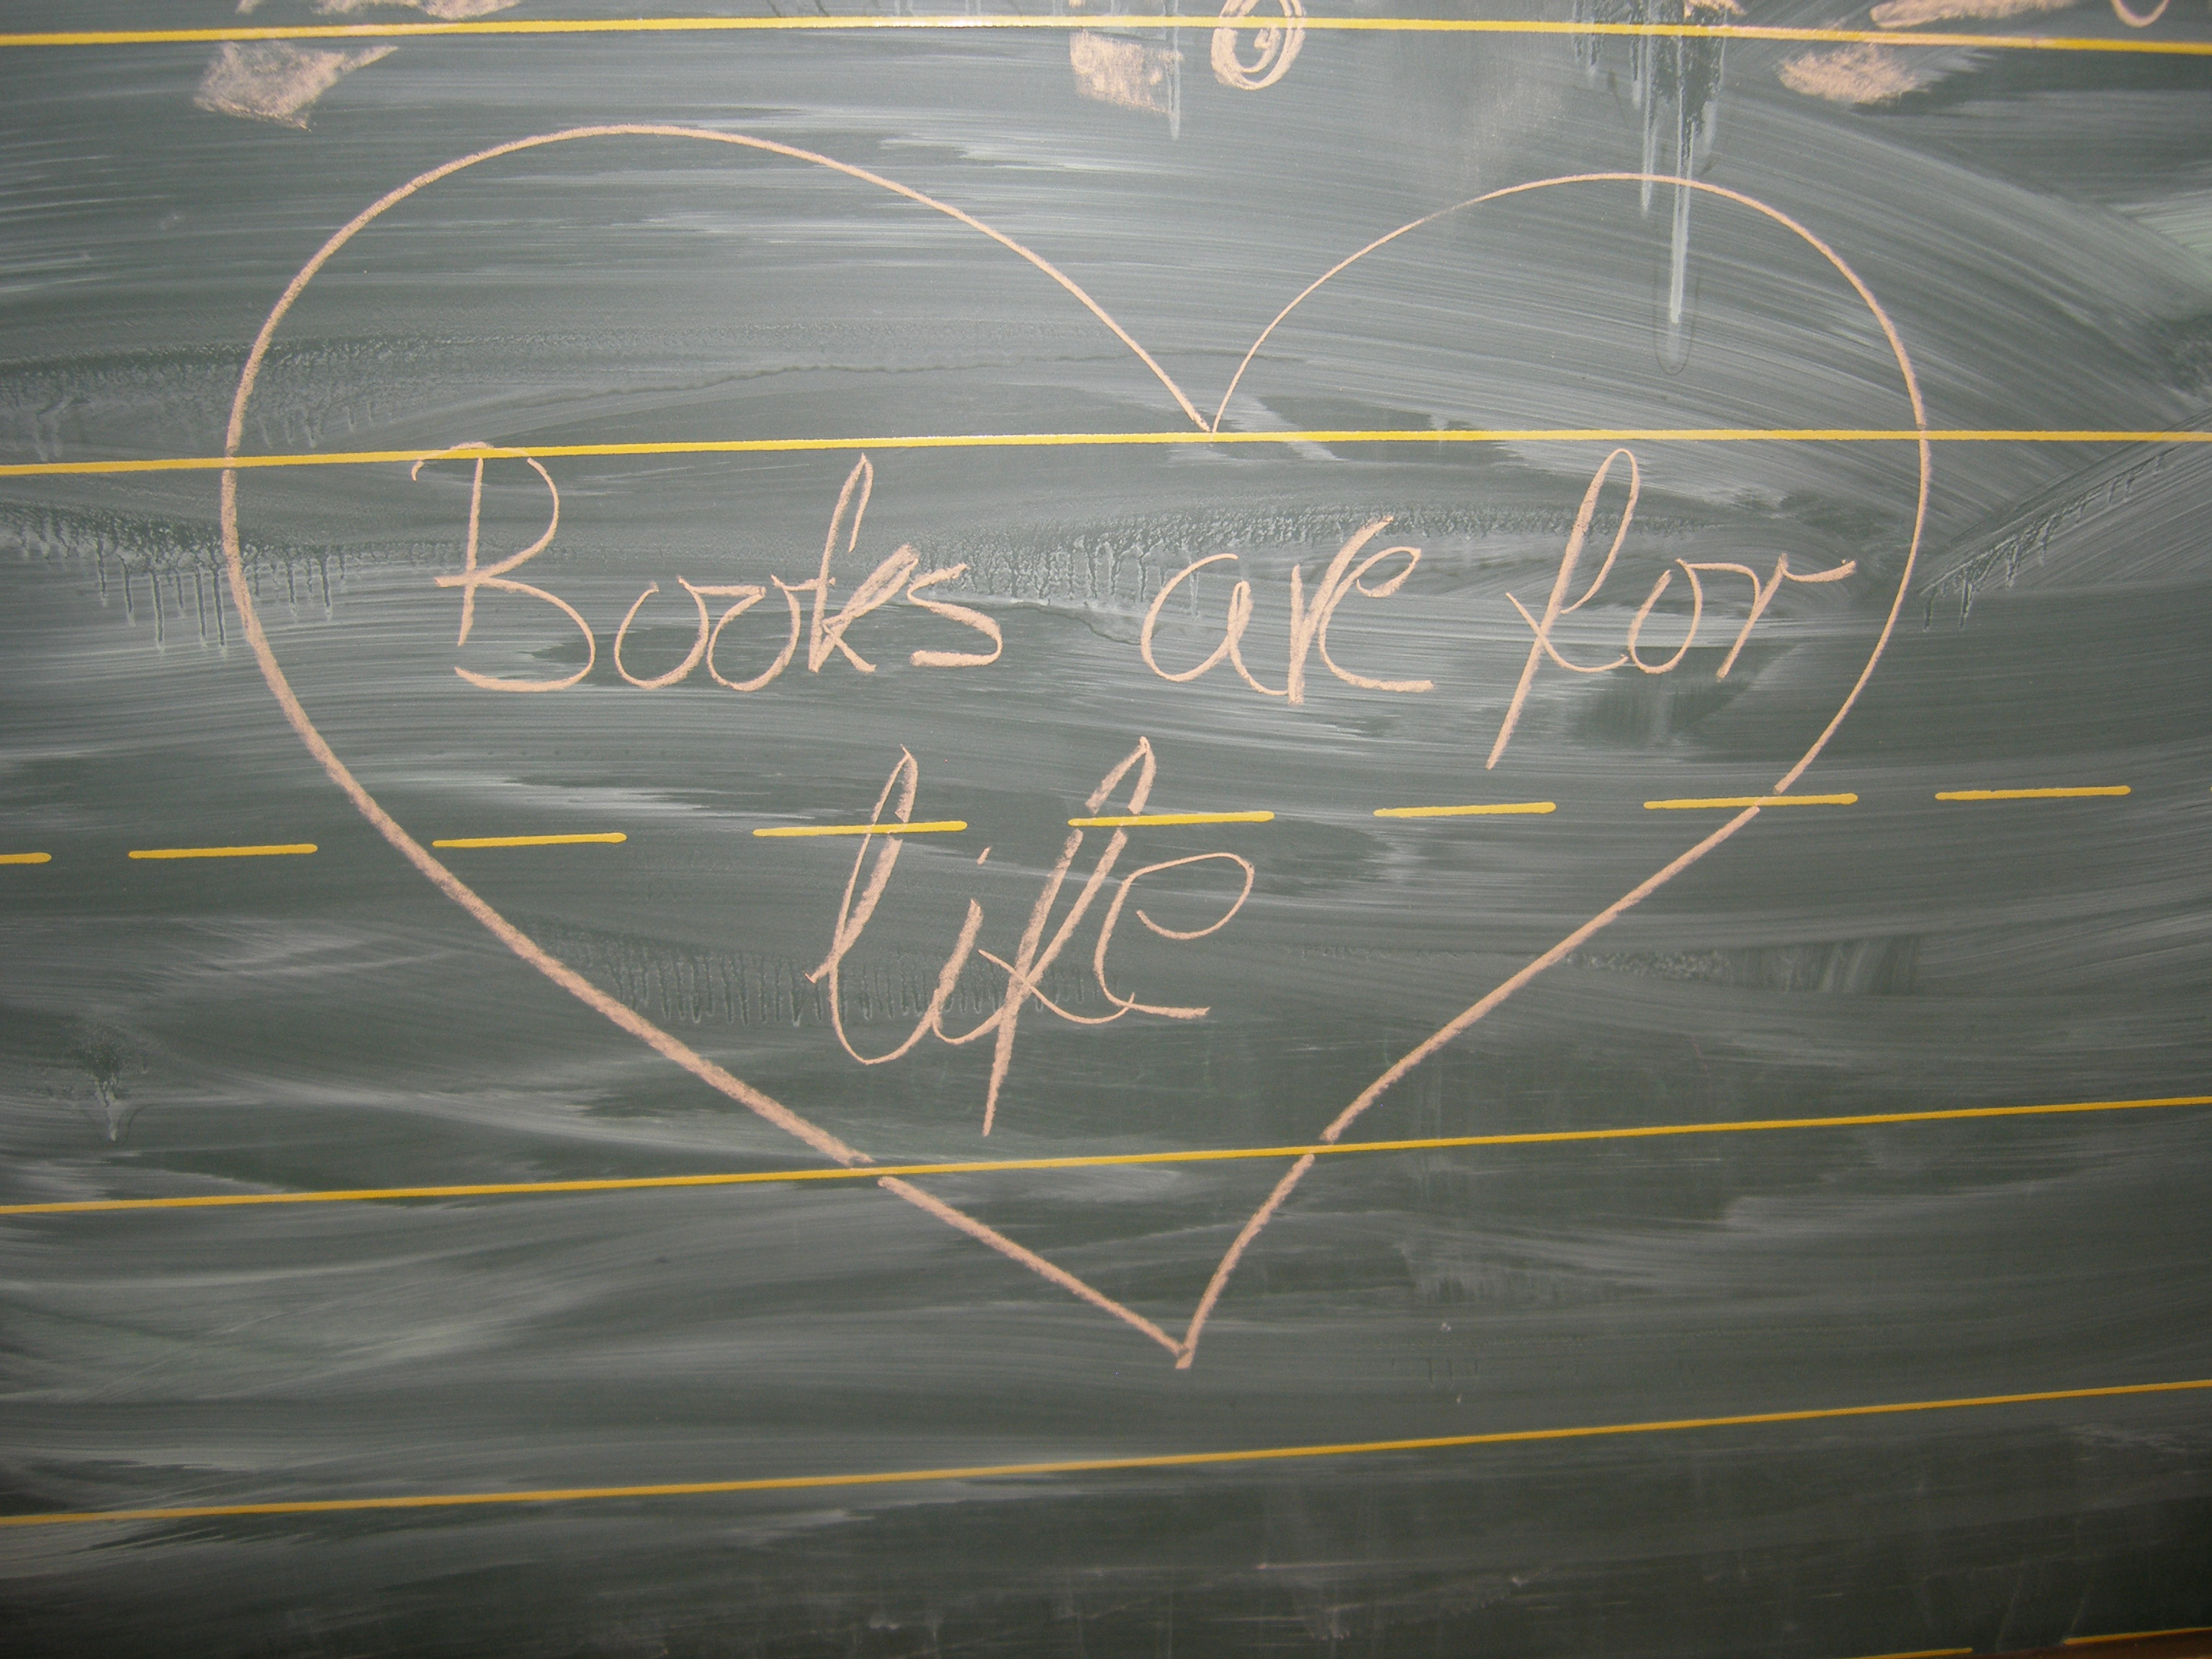 Books are for
life